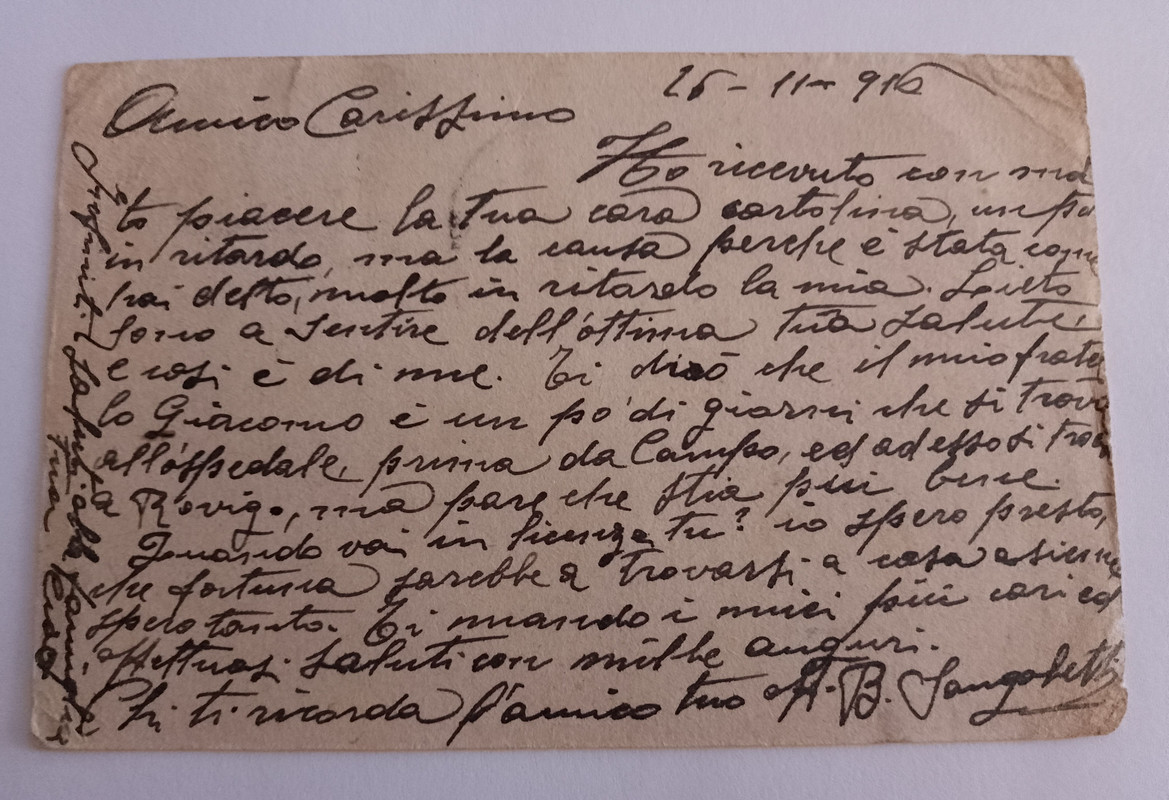 26-11-916
Amico Carissimo
Ho ricevuto con mol
to piacere la tua cara cartolina, un po
in ritardo, ma la causa perche è stata come
hai detto, molto in ritardo la mia. Lieto
sono a sentire dell'ottima tua salute
e cosi è di me. Ti dicò che il mio fratel
lo Giacomo è un po' di giorni che si trova
all'ospedale, prima da Campo, ed adesso si trova
a Rovigo, ma pare che stia più bene.
Quando vai in licenza tu? io spero presto,
che fortuna sarebbe a trovarsi a casa asieme
spero tanto. Ti mando i miei più cari ed
affettuosi saluti con mille auguri.
Chi ti ricorda l'amico tuo B.
Infiniti saluti alla famiglia
tua